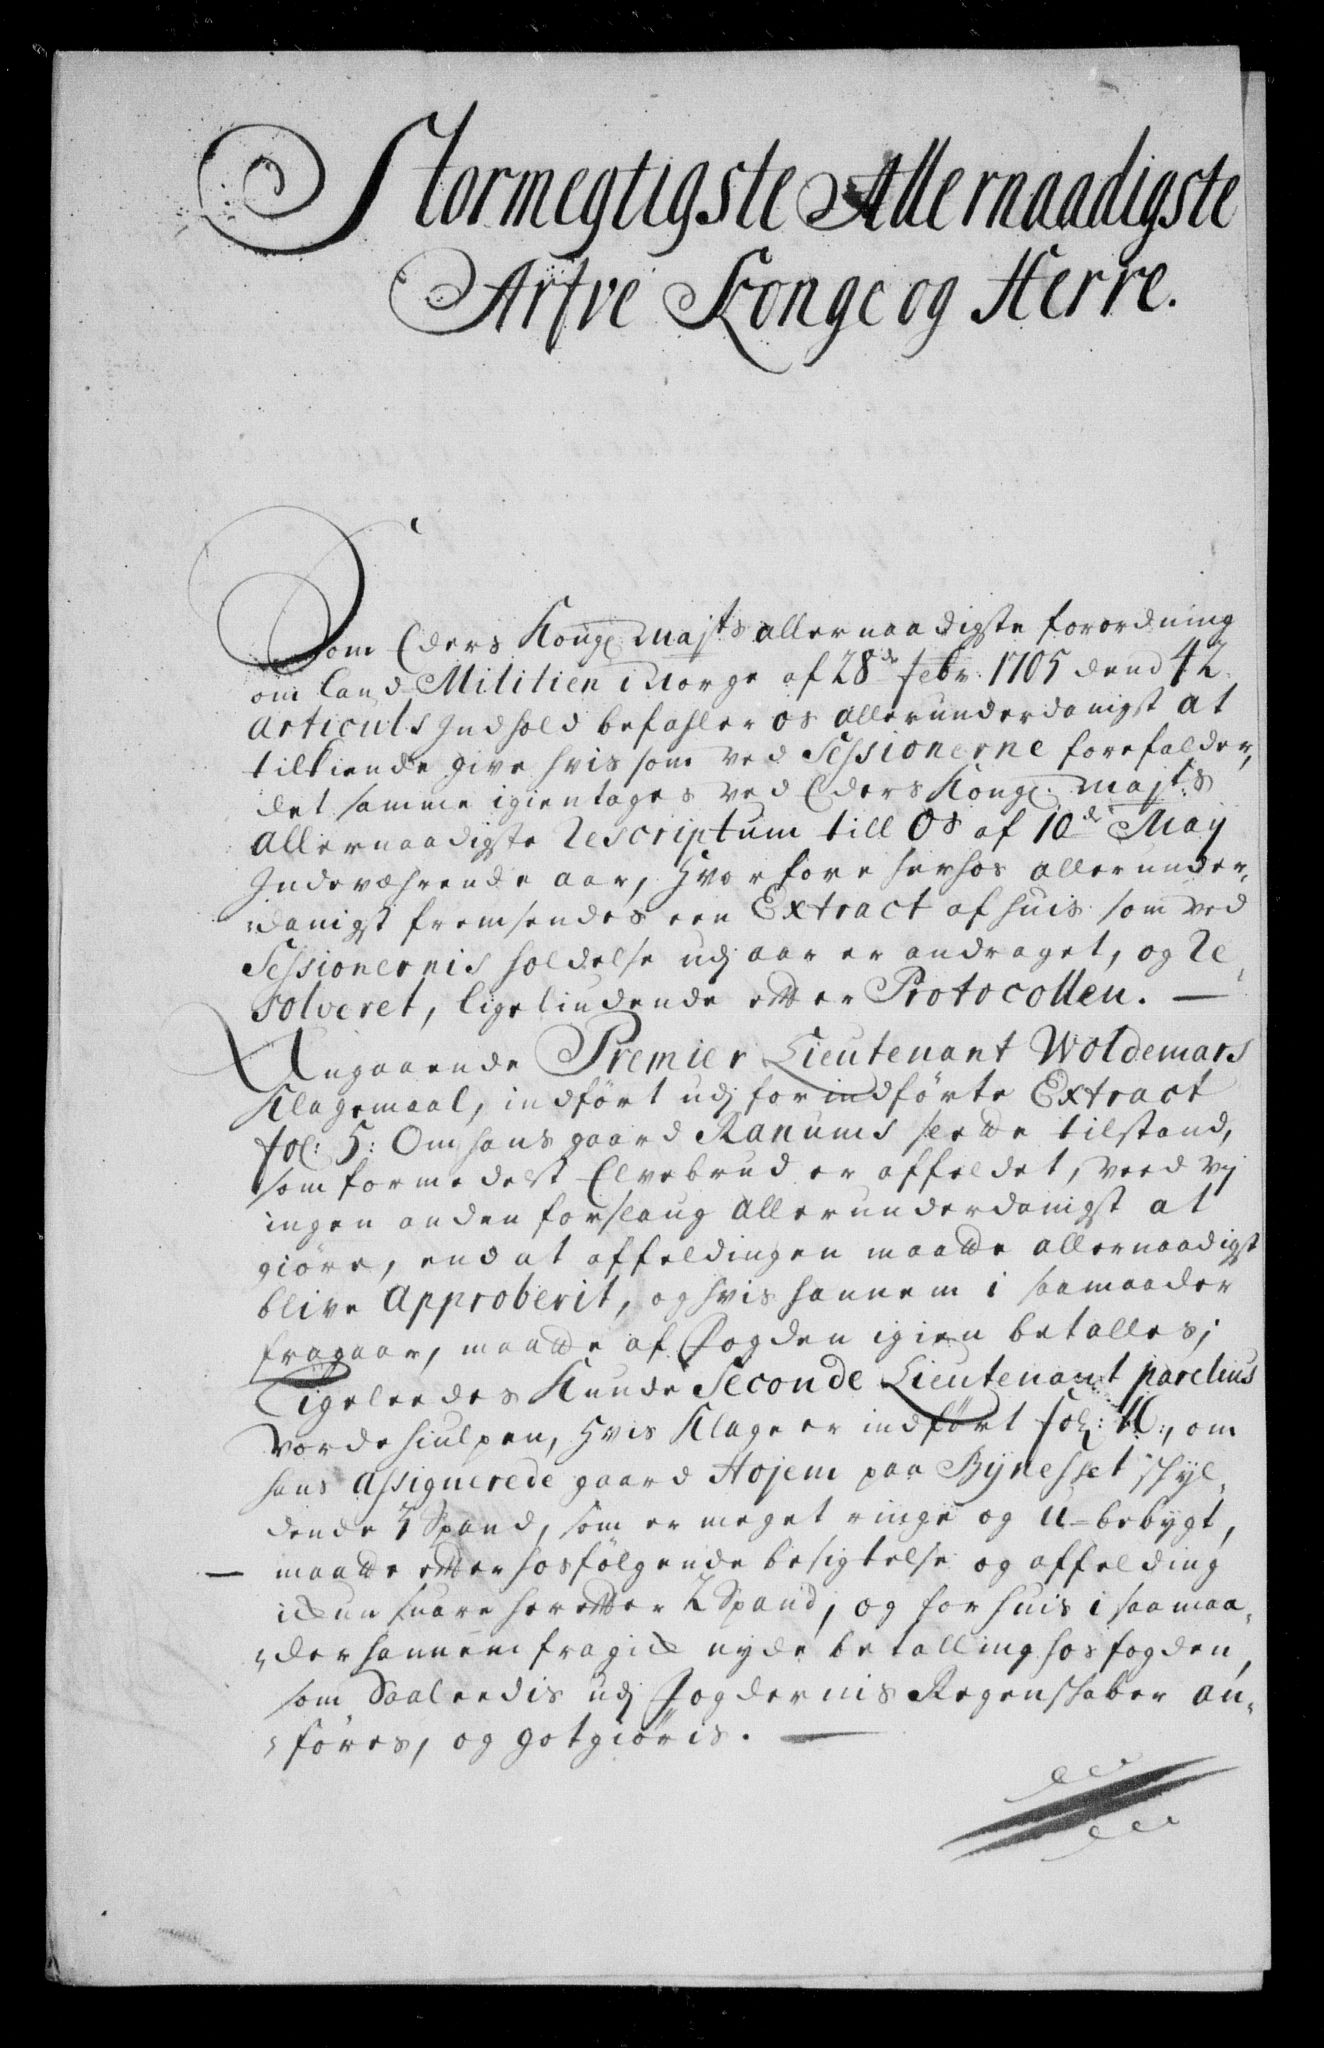 Stormegtigste Allernaadigste
Arfve Konge og Herre.
Som Eders Kongl. Majts allernaadigste forordning
om Land Militien i Norge af 28de Febr. 1705 dend 42.
Articuls Indhold befahler os allerunderdanigst at
tilkiende give hvis som ved Sessionerne forefalder,
det samme igientages ved Eders Kongl. Majts
allernaadigste Rescriptum till Os af 10de May
Indeværende aar, Hvorfore herhos allerunder,
danigst fremsendes een Extract af huis som ved
Sessionernis holdelse udj aar er andraget, og Re,
solveret, ligeliudende efter Protocollen. —
Angaaende Premier Lieutenant Woldemars
Klagemaal, indført udj forindførte Extract
fol: 5: Om hans gaard Ranums slette tilstand,
som formedelst Elvebrud er affeldet, veed vj
ingen anden forslaug allerunderdanigst at
giøre, end at affeldingen maatte allernaadigst
blive Approberit, og hvis hannem i saamaader
fragaar, maatte af Fogden igien betalles;
Ligeleedes Kunde Seconde Lieutenant parelius
vorde hiulpen, Hvis Klage er indført fol: :, om
hans Assignerede gaard Hojem paa Bynesset skyl,
dende Spand, som er meget ringe og U-bebygt,
— maatte efter hosfølgende besigtelse og affelding
ickun suare herefter 2 Spand, og for huis i saamaa,
der hannem fragick nyde betalling hos fogden,
som Saaleedis udj Fogdernis Regenskaber an,
føres, og gotgiøris. —